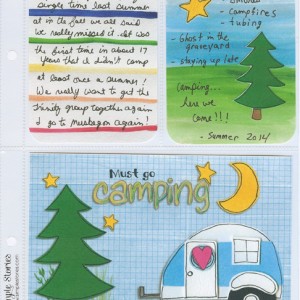 single time last summer
at in the fall we all said
we really missed it. It was
the first time in about 17
years that I didn't camp
at least once a summer!
We really want to get the
family group together again
& go to Muskegon again!
- smores
- campfires
- tubing
- Ghost in the
graveyard
- staying up late
Camping...
here we
come!!!
- Summer 2014
Must go
camping
simple Stories